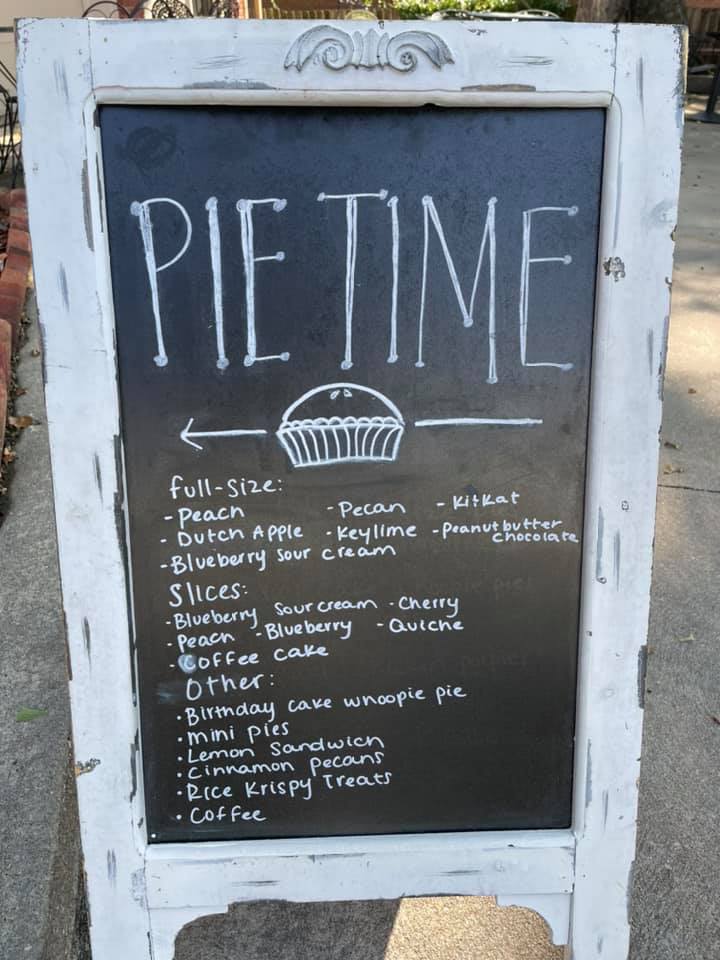 PIE TIME
full-size:
- Peach - Pecan - KitKat
- Dutch Apple - Keylime - Peanut butter chocolate
- Blueberry sour cream
Slices:
- Blueberry sour cream - Cherry
- Peach - Blueberry - Quiche
- Coffee cake
Other:
• Birthday cake whoopie pie
• mini pies
• Lemon Sandwich
• Cinnamon pecans
• Rice Krispy Treats
• Coffee